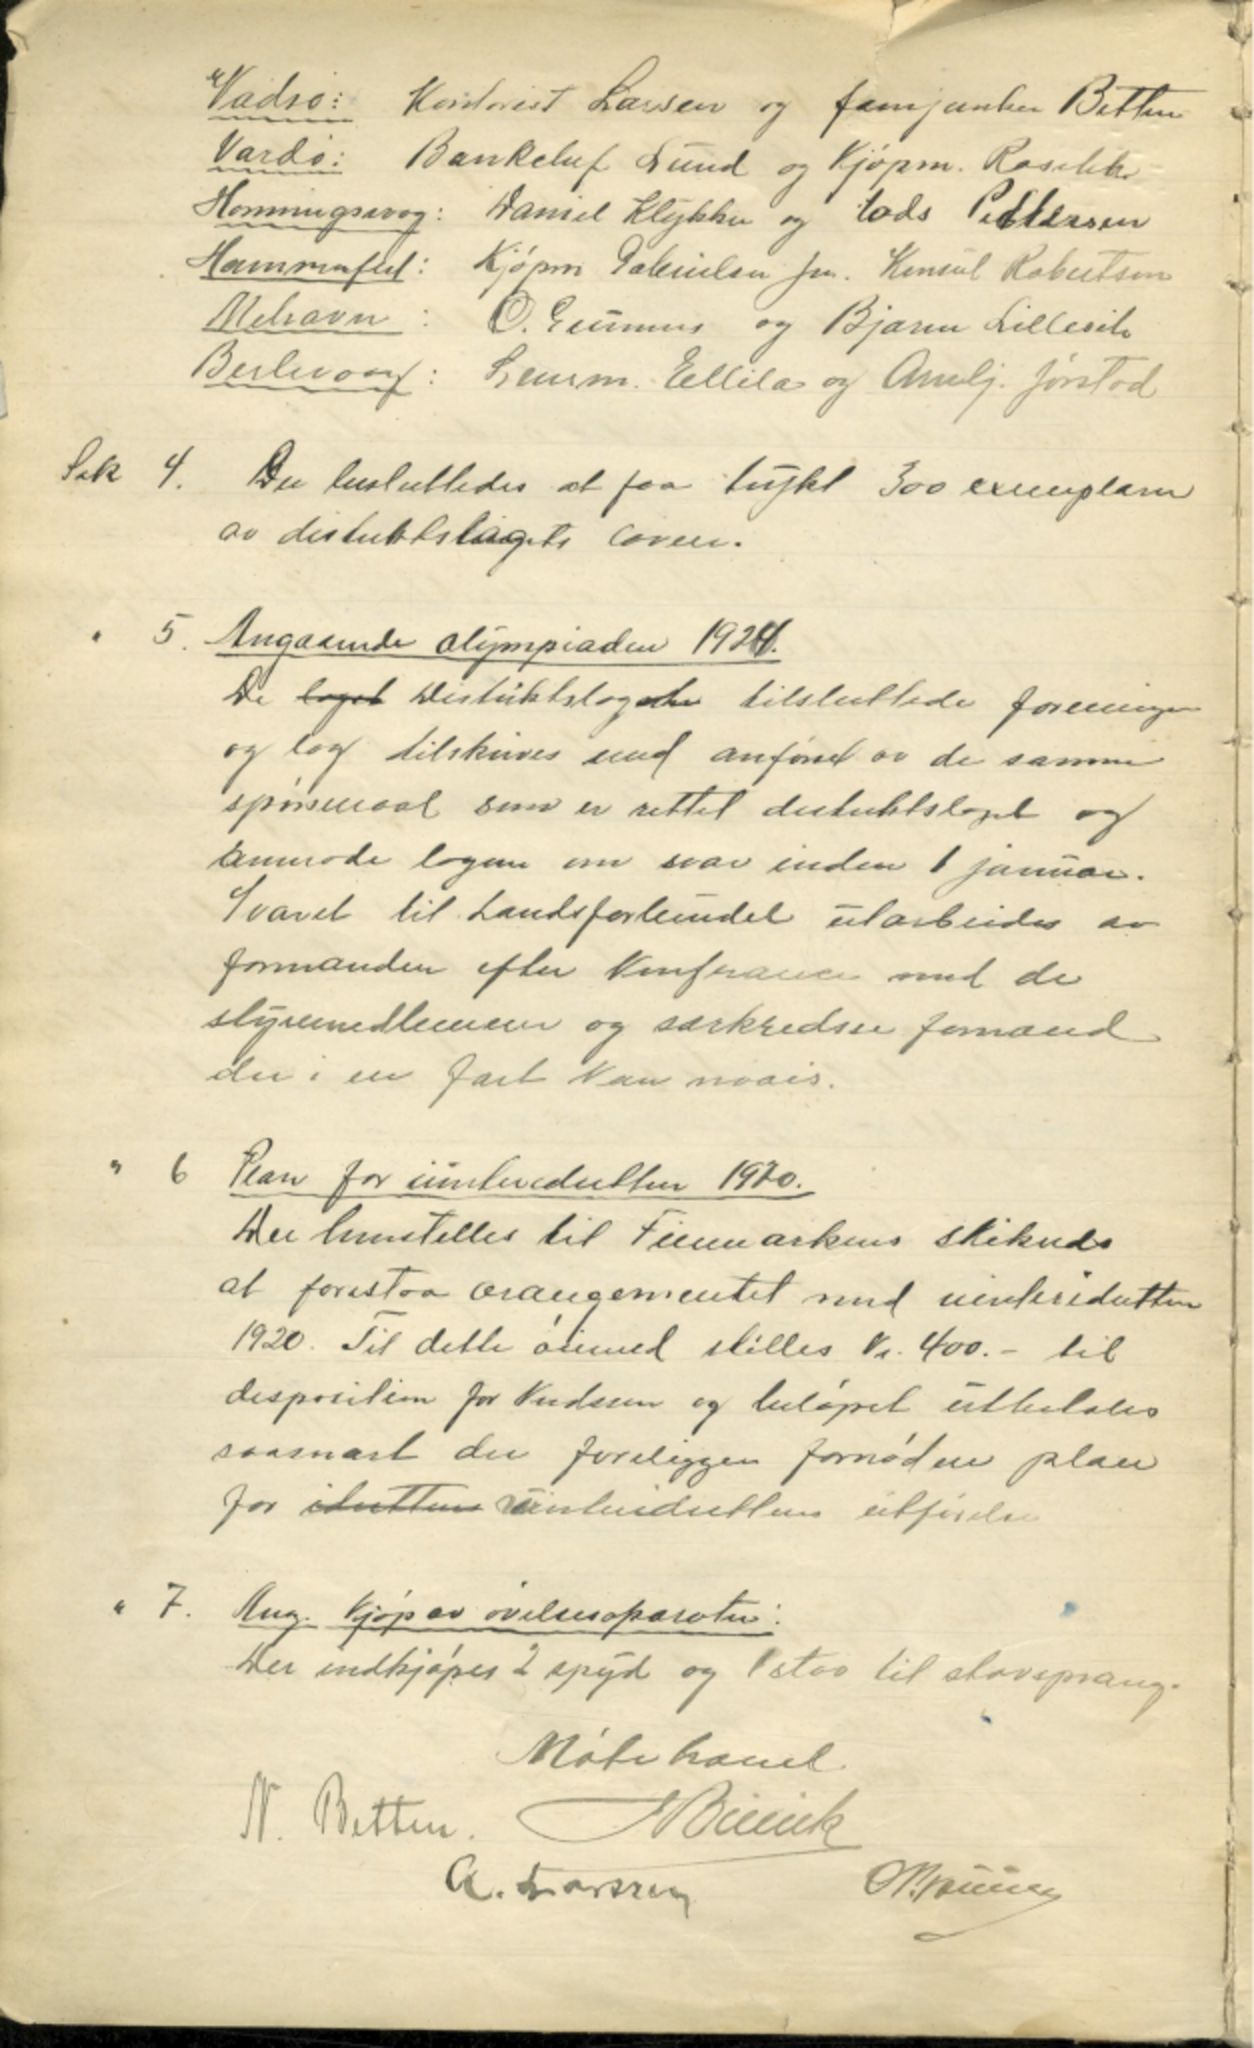 Vadsø: Kontorist Larsen og fanejunker Betten
Vardø: Bankchef Lund og Kjøpm.
Honningsvog: Daniel Klykken og Lods Pettersen
Hammerfest: Kjøpm Gabrielsen jr. Konsul Robertson
Mehavn: O. og Bjarne Lillevik
Berlevaag: Lensm. Ellila og Jørstad
Sak 4. Der besluttedes at faa trykt 300 exemplarer
av distriktslagets loven.
" 5. Angaaende olympiaden 1924.
De laget Distriktslagets tilsluttede foreninger
og lag tilskrives med anførsel av de samme
spørsmaal som er rettet distriktslaget og
anmode lagene om svar inden 1 januar.
Svaret til Landsforbundet utarbeides av
formanden efter Konferance med de
styremedlemmer og særkredsers formænd
der i en fart kan naaes.
" 6 Plan for vinteridrætten 1920.
Der henstilles til Finmarkens skikreds
at forestaa arangementet med vinteridrætten
1920. Til dette øiemed stilles Kr. 400.- til
disposition for Kredsen og beløpet utbetales
saasnart der foreligger fornøden plan
for idrætten vinteridrættens utførelse
" 7. Ang. Kjøp av øvelsesaparater:
Der indkjøpes 2 spyd og 1 stav til stavsprang.
Møte hævet
N. Betten.
A. Larssen